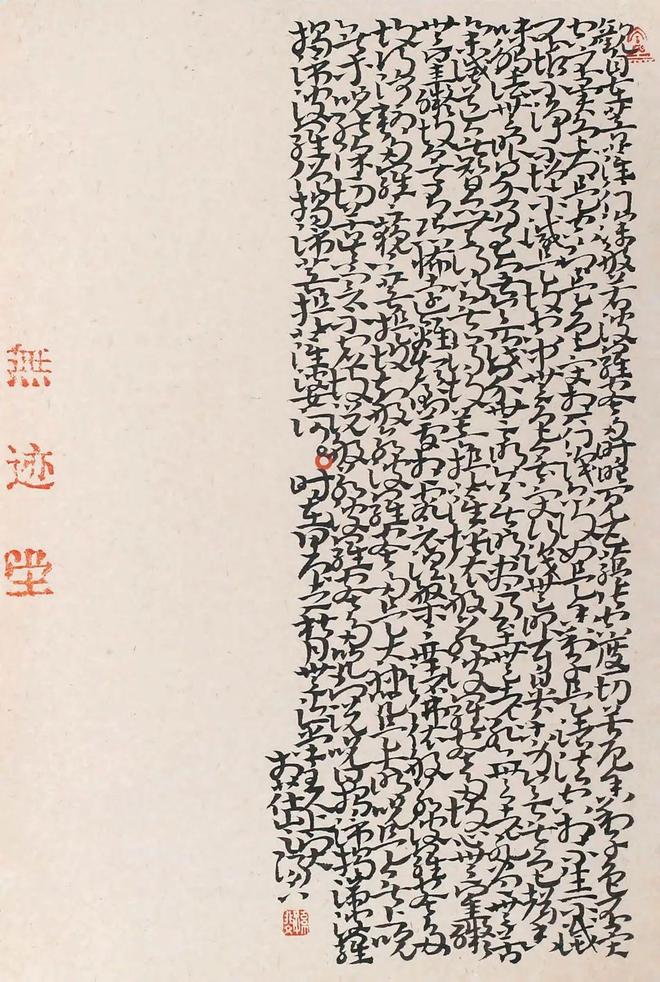 觀自在菩薩行深般若波羅蜜多時照見五蘊皆空度一切苦厄舍利子色不異
空空不異色色即是空空即是色受想行識亦復如是舍利子是諸法空相不生不滅
不垢不淨不增不減是故空中無色無受想行識無眼耳鼻舌身意無色聲香
味觸法無眼界乃至無意識界無無明亦無無明盡乃至無老死亦無老死盡無苦
集滅道無智亦無得以無所得故菩提薩埵依般若波羅蜜多故心無罣礙
無罣礙故無有恐怖遠離顛倒夢想究竟涅槃三世諸佛依般若波羅蜜多
故得阿耨多羅三藐三菩提故知般若波羅蜜多是大神咒是大明咒是無上咒
是無等等咒能除一切苦真實不虛故說般若波羅蜜多咒即說咒曰揭諦揭諦波羅
揭諦波羅僧揭諦菩提薩婆訶時在
無迹坐